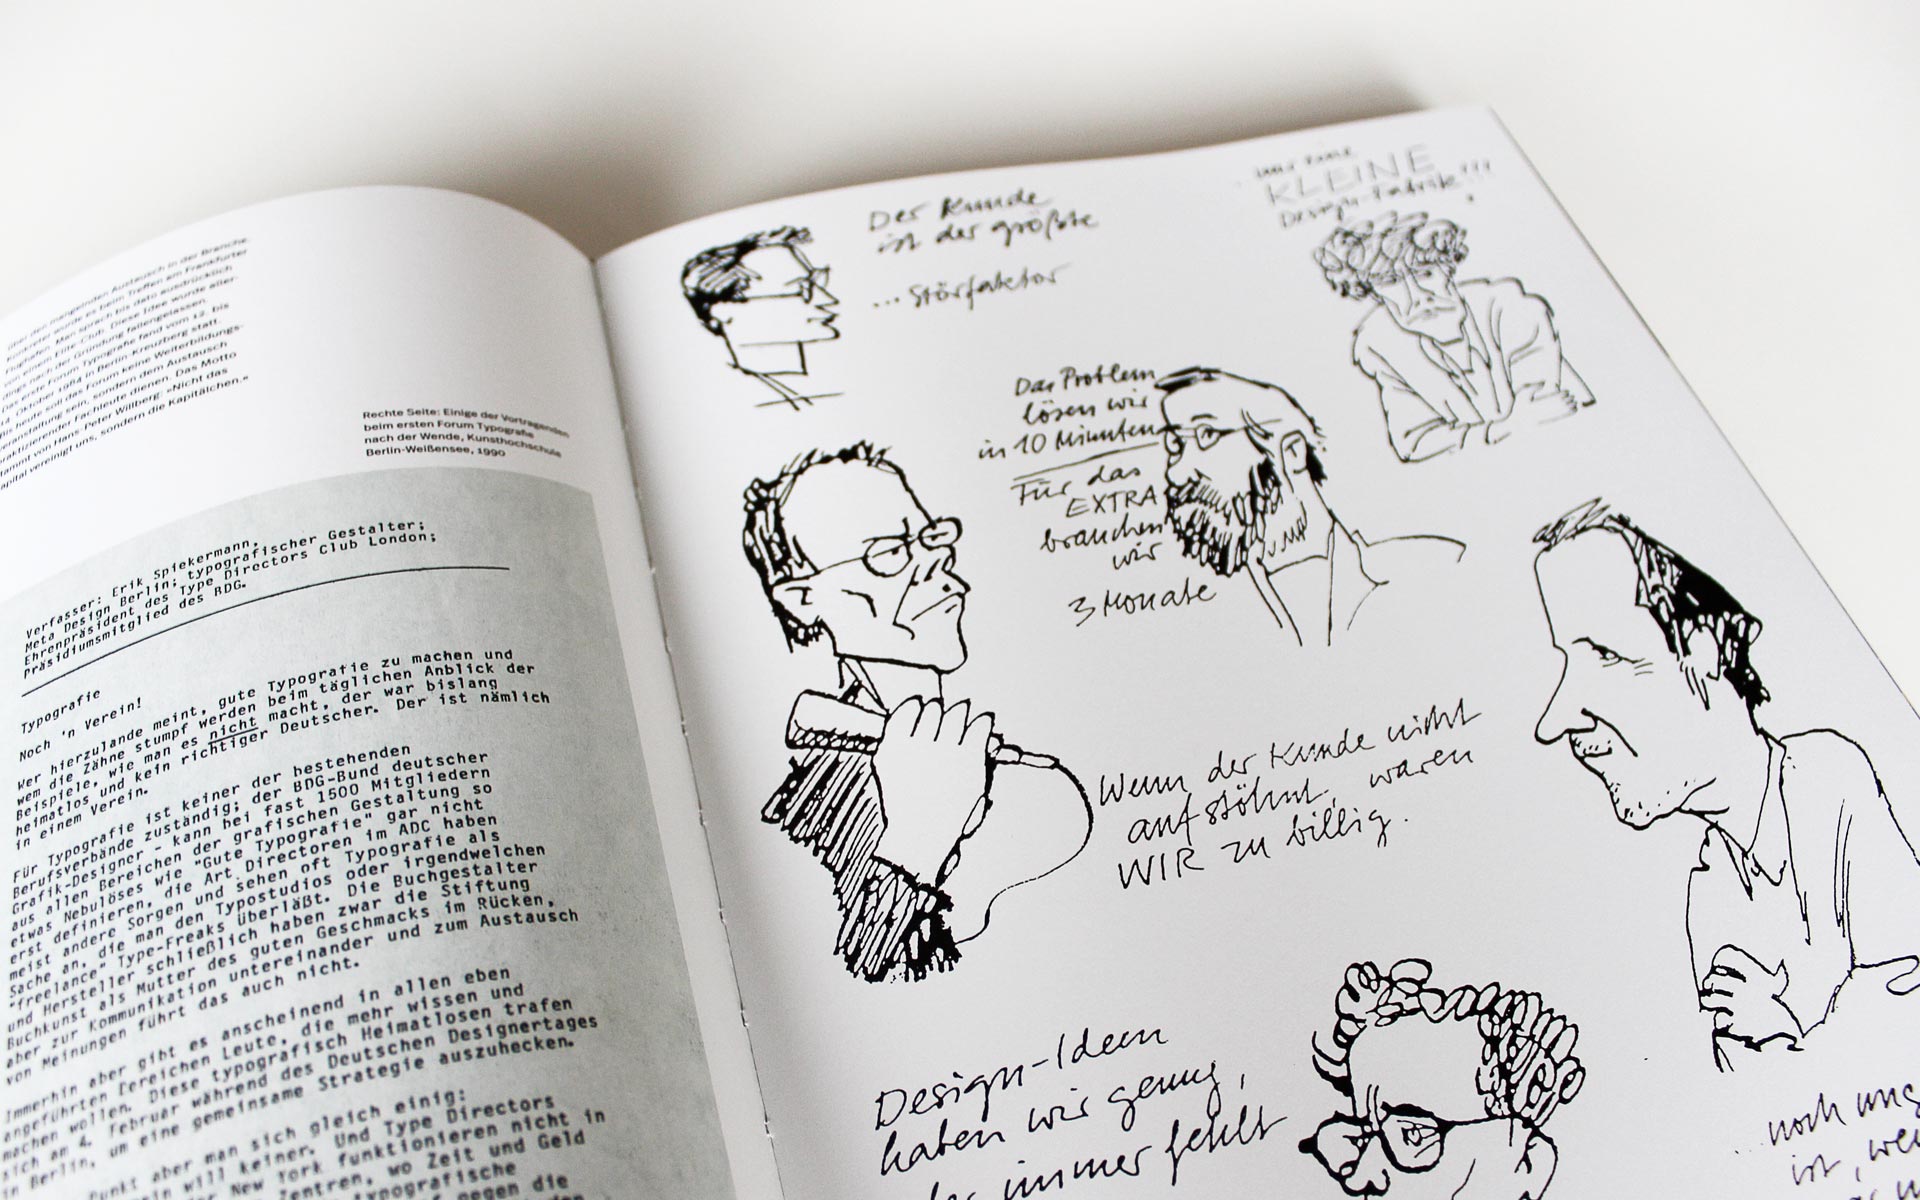 über den mangelnden Austausch in der Branche.
konkreter wurde es beim Treffen am Frankfurter
Flughafen. Man sprach bis dato ausdrücklich
von einem Elite-Club. Diese Idee wurde aller-
nach der Gründung fallengelassen.
Das erste Forum Typografie fand vom 12. bis
14. Oktober 1984 in Berlin-Kreuzberg statt.
Bis heute soll das Forum keine Weiterbildungs-
veranstaltung sein, sondern dem Austausch
praktizierender Fachleute dienen. Das Motto
stammt von Hans Peter Willberg: «Nicht das
Kapital vereinigt uns, sondern die Kapitälchen.»
Rechte Seite: Einige der Vortragenden
beim ersten Forum Typografie
nach der Wende, Kunsthochschule
Berlin-Weißensee, 1990
Verfasser: Erik Spiekermann,
Meta Design Berlin; typografischer Gestalter;
Ehrenpräsident des Type Directors Club London;
Präsidiumsmitglied des BDG.
Typografie
Noch 'n Verein!
Wer hierzulande meint, gute Typografie zu machen und
wem die Zähne stumpf werden beim täglichen Anblick der
Beispiele, wie man es nicht macht, der war bislang
heimatlos und kein richtiger Deutscher. Der ist nämlich
in einem Verein.
Für Typografie ist keiner der bestehenden
Berufsverbände zuständig; der BDG-Bund deutscher
Grafik-Designer - kann bei fast 1500 Mitgliedern
aus allen Bereichen der grafischen Gestaltung so
etwas Nebulöses wie "Gute Typografie" gar nicht
erst definieren, die Art Directoren im ADC haben
meist andere Sorgen und sehen oft Typografie als
Sache an, die man den Typostudios oder irgendwelchen
"freelance" Type-Freaks überläßt. Die Buchgestalter
und Hersteller schließlich haben zwar die Stiftung
Buchkunst als Mutter des guten Geschmacks im Rücken,
aber zur Kommunikation untereinander und zum Austausch
von Meinungen führt das auch nicht.
Immerhin aber gibt es anscheinend in allen eben
angeführten Bereichen Leute, die mehr wissen und
machen wollen. Diese typografisch Heimatlosen trafen
sich am 4. Februar während des Deutschen Designertages
in Berlin, um eine gemeinsame Strategie auszuhecken.
Punkt aber war man sich gleich einig:
will keiner. Und Type Directors
New York funktionieren nicht in
Zentren, wo Zeit und Geld
typografische
gegen die
Der Kunde
ist der größte
... Störfaktor
KLEINE
Design-Fabrik!!!
Das Problem
lösen wir
in 10 Minuten
Für das
EXTRA
brauchen
wir
3 Monate
Wenn der Kunde nicht
aufstöhnt, waren
WIR zu billig.
Design-Ideen
haben wir genug,
immer fehlt
noch
ist,